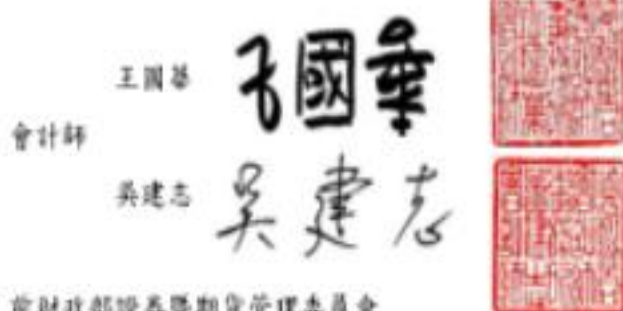 王國華
王國華
會計師
吳建志
吳建志
前財政部證券暨期貨管理委員會